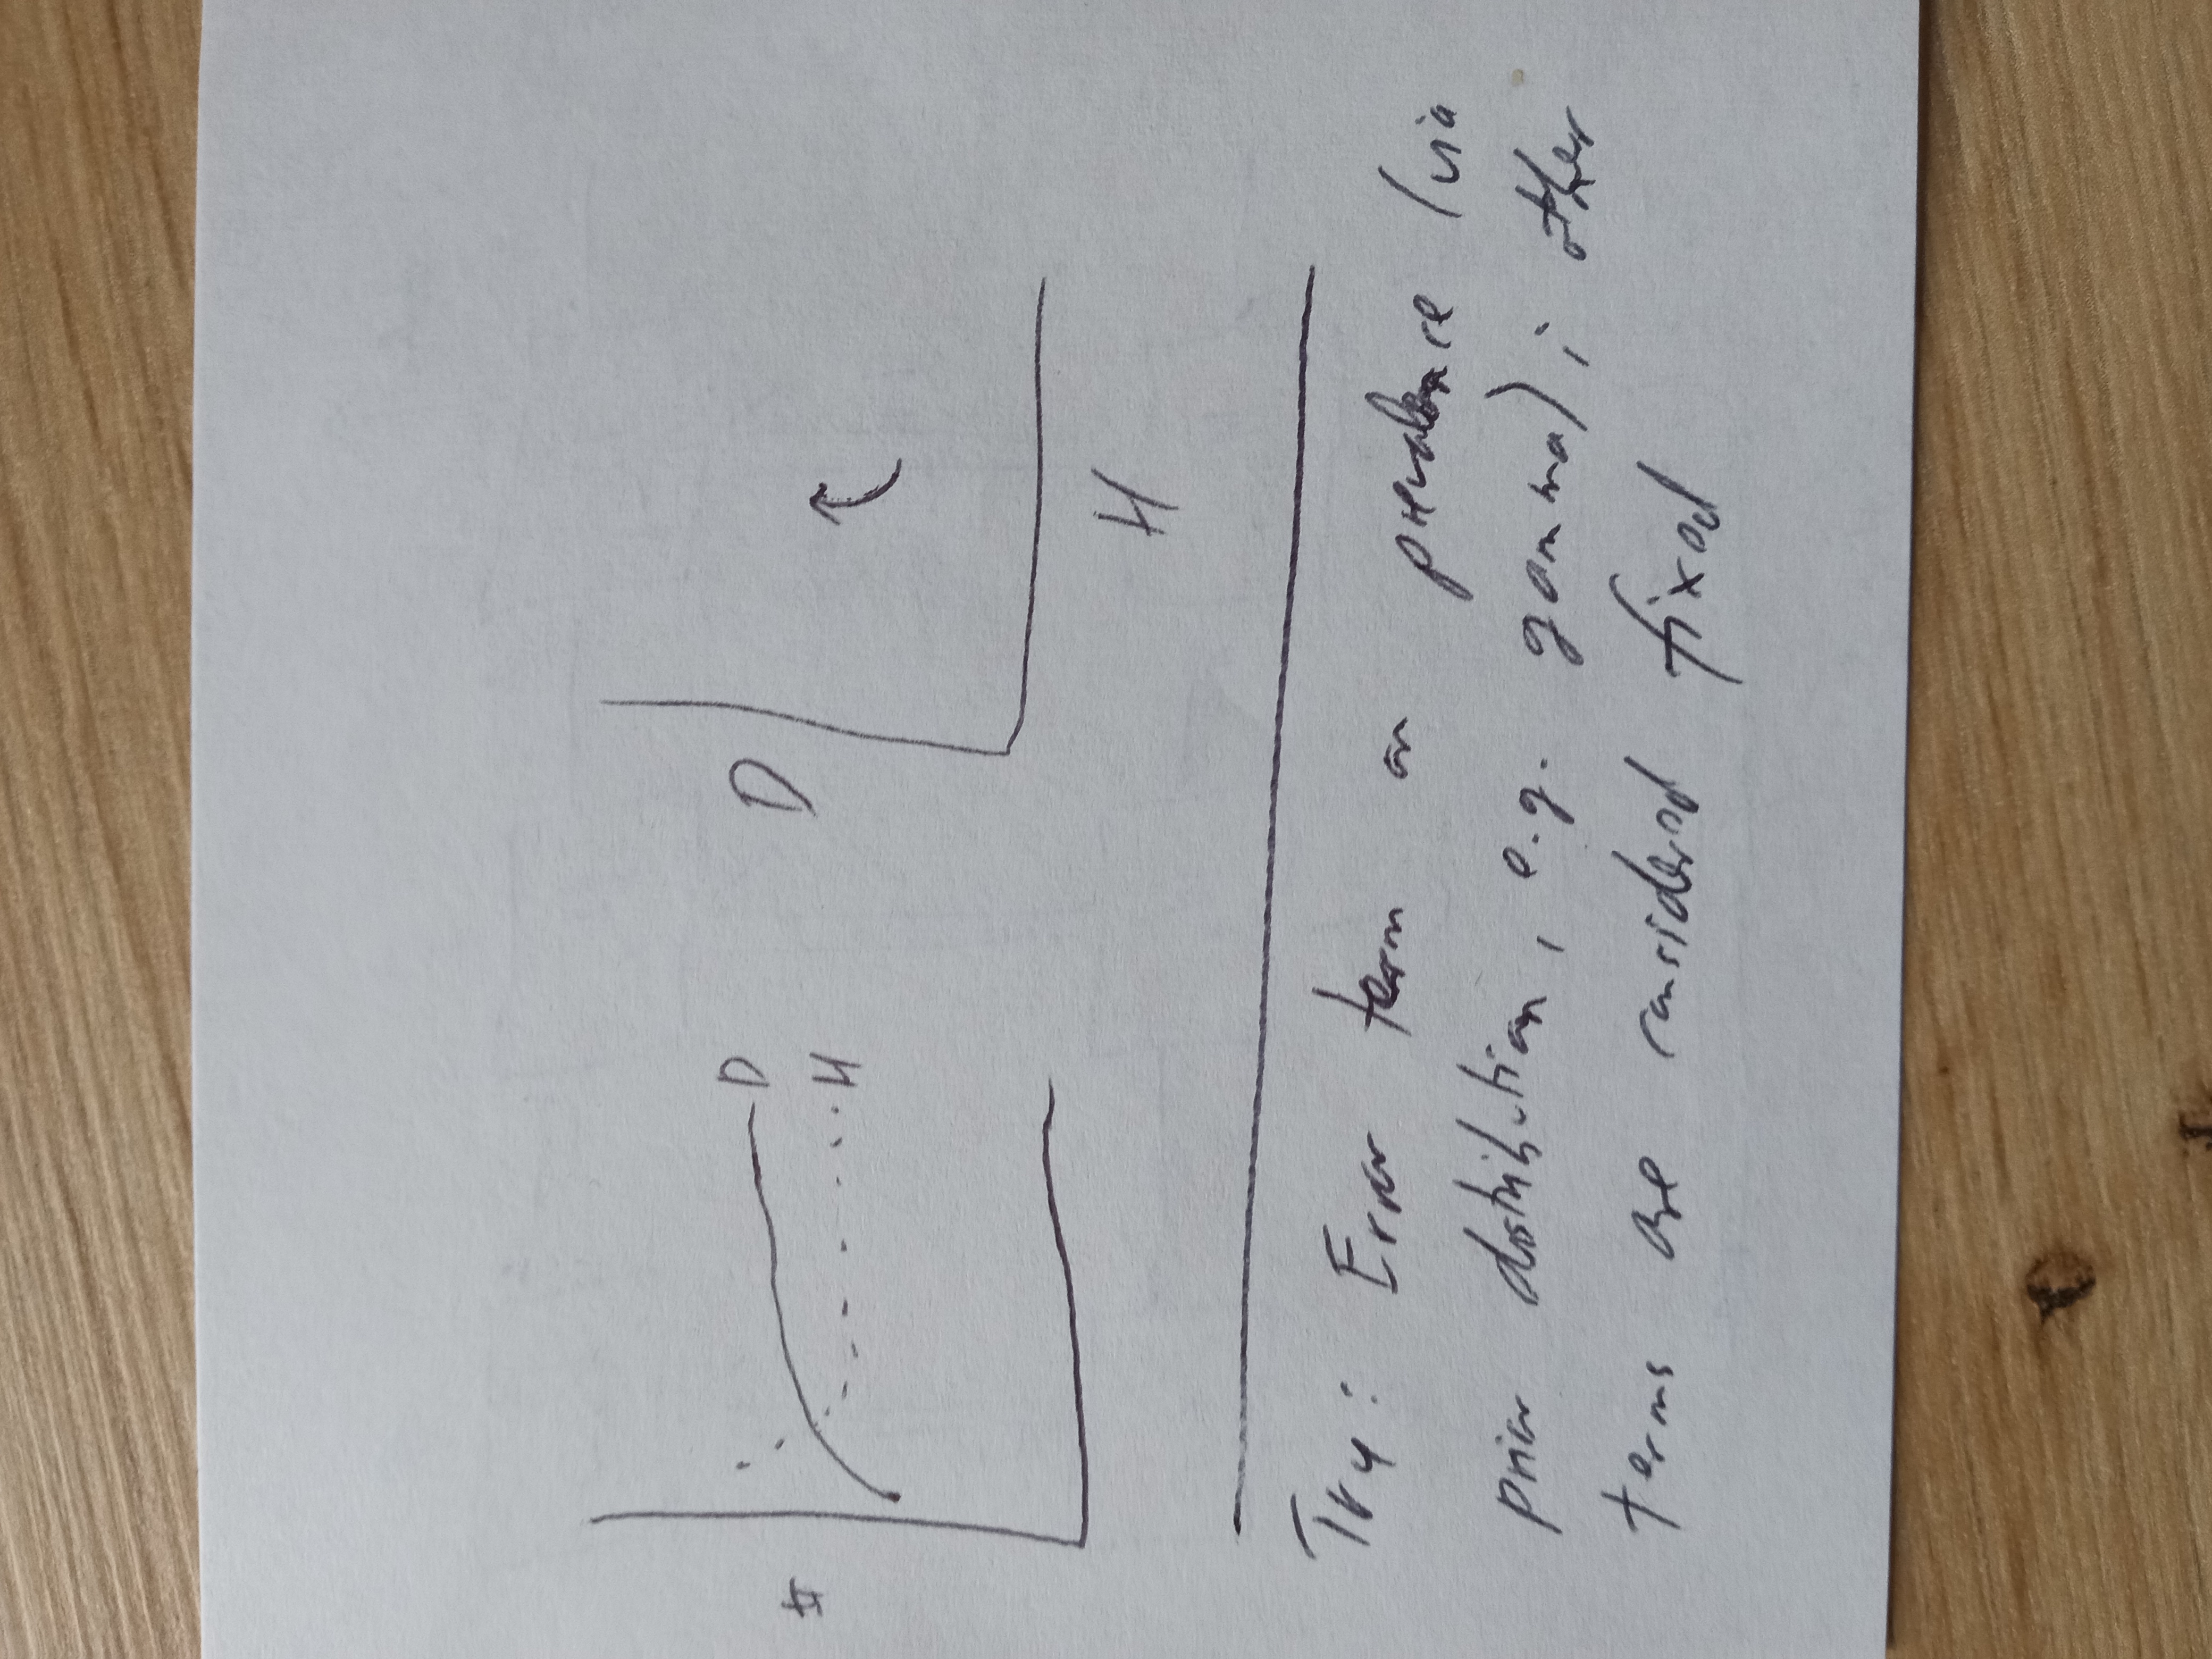 # D H
D H
Try: Error term on prevalence (via
prior distribution, e.g. gamma); other
terms are considered fixed